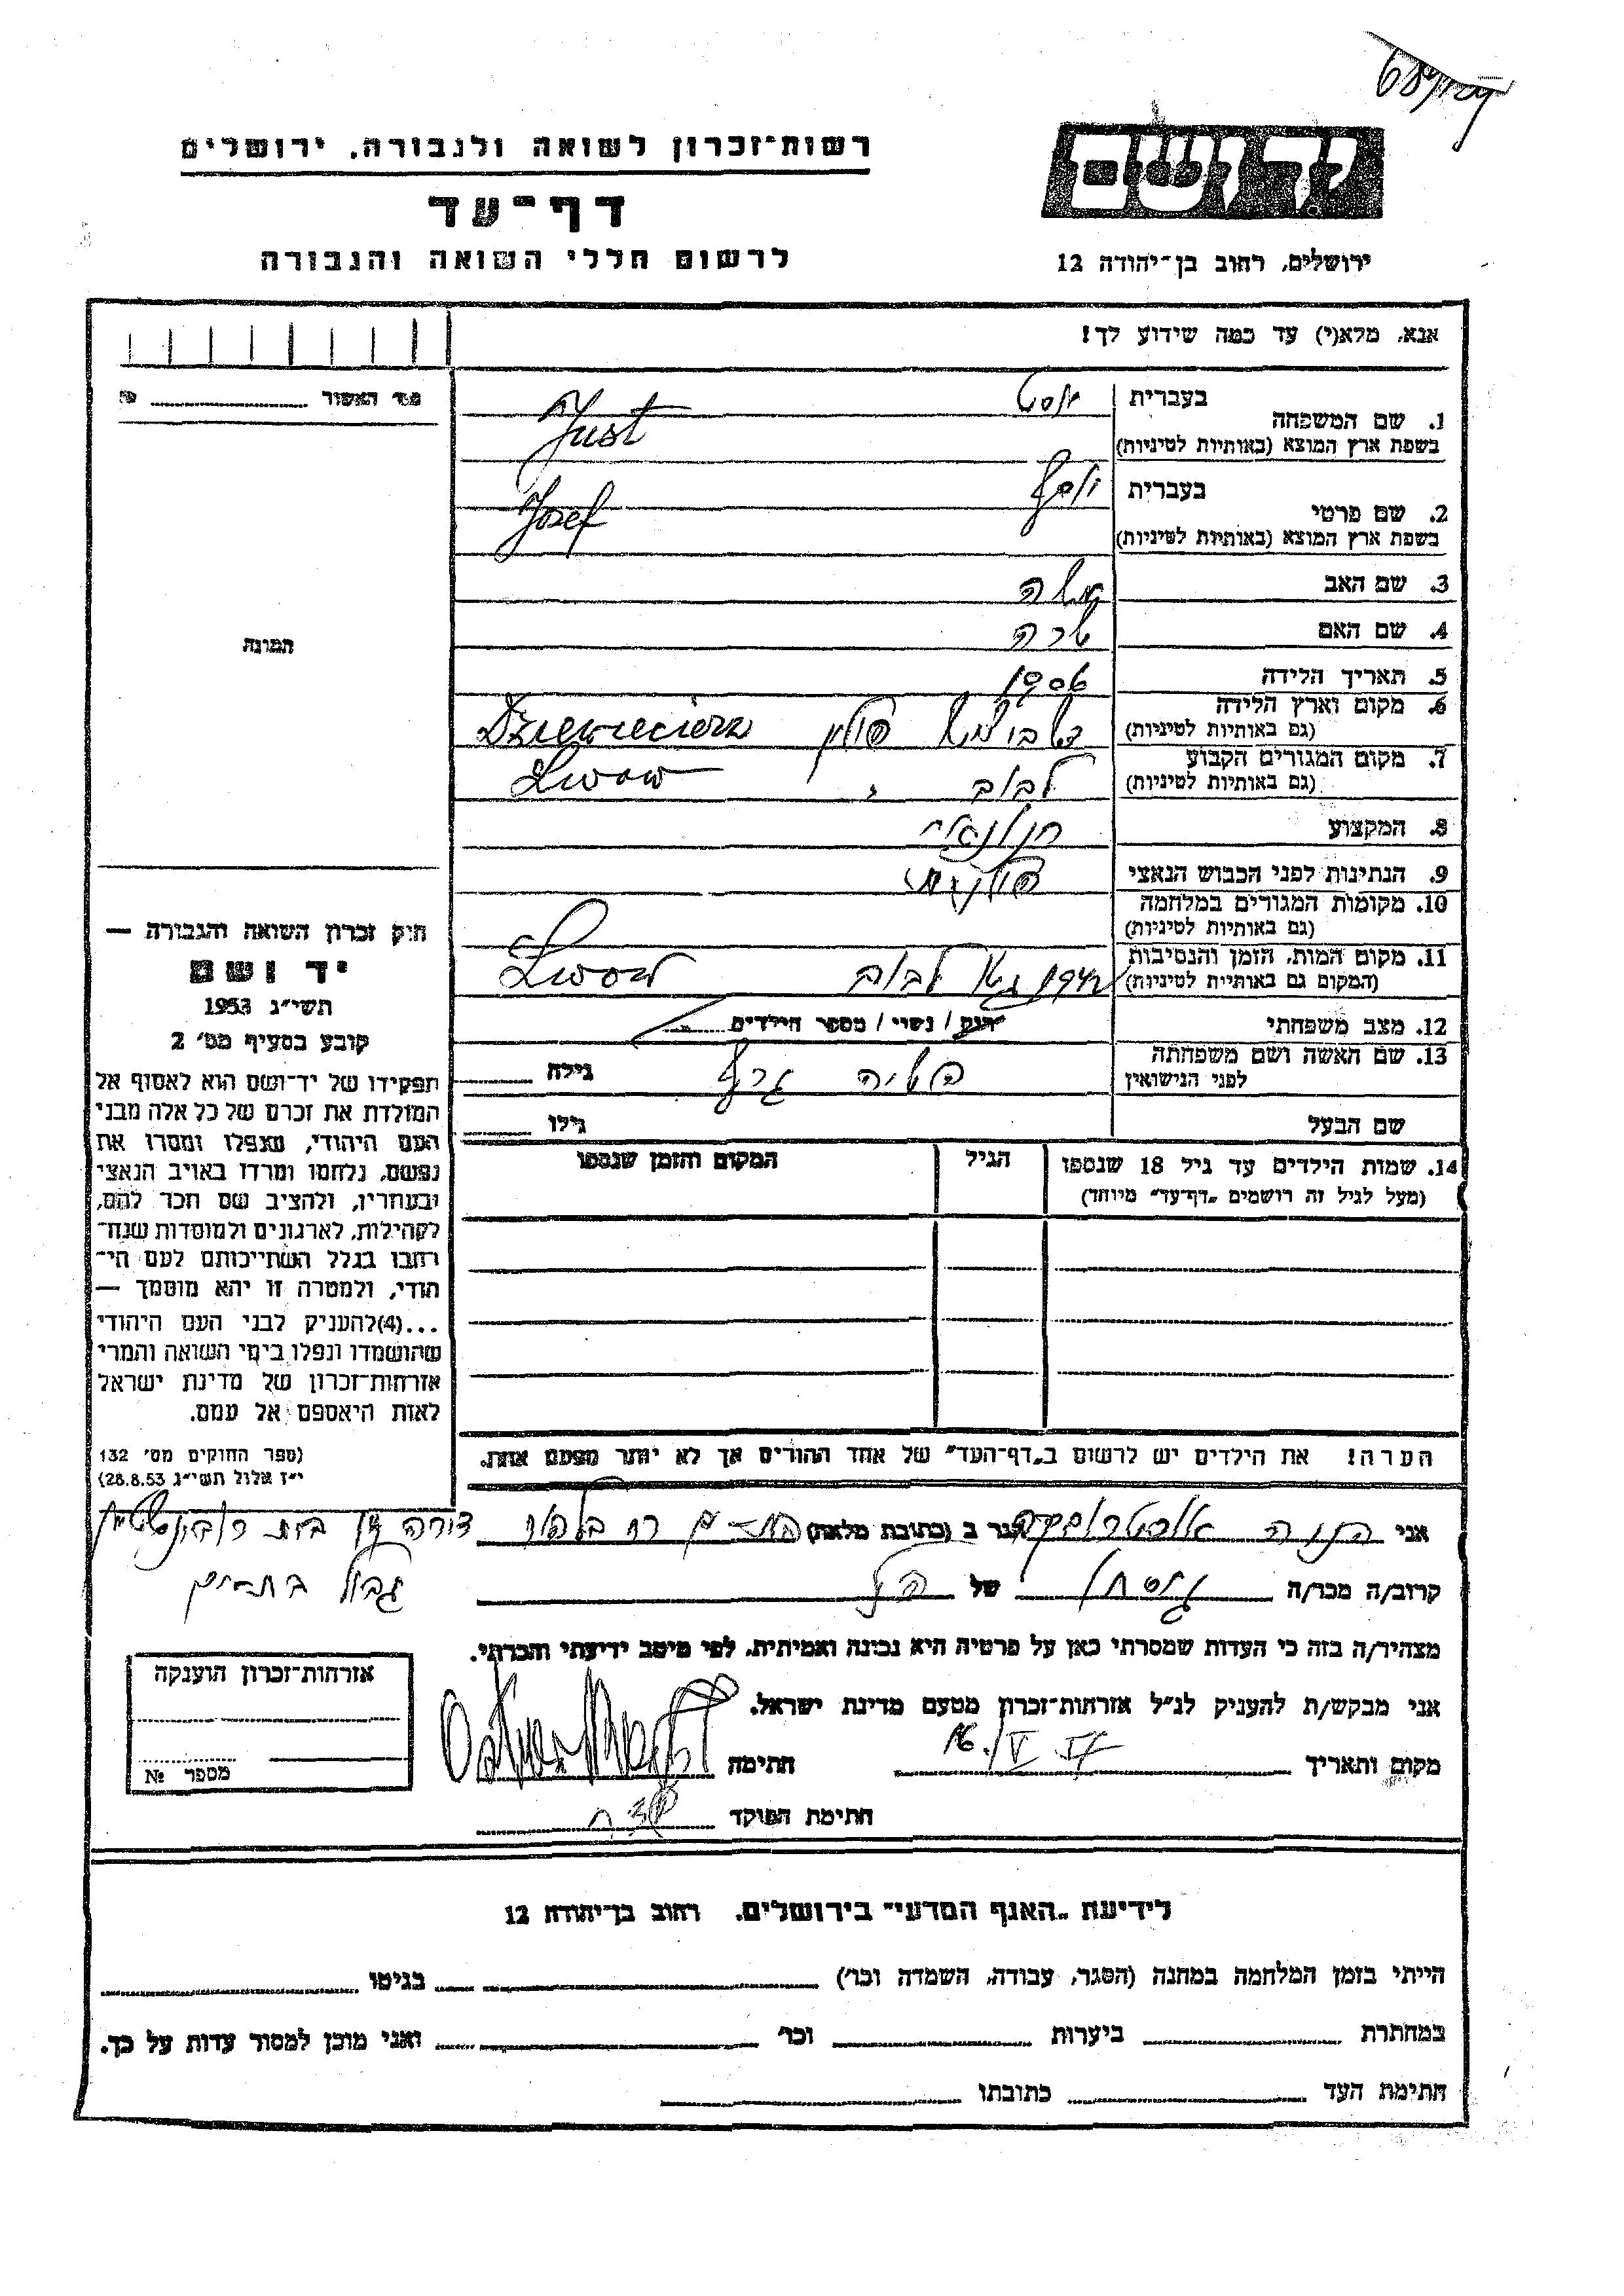 רשות־זכרון לשואה ולגבורה, ירושלים
דף־עד
לרשום חללי השואה והגבורה
יד ושם
ירושלים, רחוב בן־יהודה 12
אנא, מלא(י) עד כמה שידוע לך!
מס׳ האשור №
התמונה
בעברית יוסט
1. שם המשפחה
בשפת ארץ המוצא (באותיות לטיניות) Just
בעברית יוסף
2. שם פרטי
בשפת ארץ המוצא (באותיות לטיניות) Josef
3. שם האב משה
4. שם האם שרה
5. תאריך הלידה 1906
6. מקום וארץ הלידה
(גם באותיות לטיניות) פולין
7. מקום המגורים הקבוע
(גם באותיות לטיניות) לבוב Lwow
8. המקצוע חנונאי
9. הנתינות לפני הכבוש הנאצי פולנית
10. מקומות המגורים במלחמה
(גם באותיות לטיניות)
11. מקום המות, הזמן והנסיבות
(המקום גם באותיות לטיניות) גטו לבוב Lwow
12. מצב משפחתי רווק / נשוי / מספר הילדים
13. שם האשה ושם משפחתה
לפני הנישואין גילה
שם הבעל גילו
14. שמות הילדים עד גיל 18 שנספו
(מעל לגיל זה רושמים „דף־עד״ מיוחד)
הגיל
המקום והזמן שנספו
הערה! את הילדים יש לרשום ב„דף־העד״ של אחד ההורים אך לא יותר מפעם אחת.
חוק זכרון השואה והגבורה —
יד ושם
תשי״ג 1953
קובע בסעיף מס׳ 2
תפקידו של יד־ושם הוא לאסוף אל
המולדת את זכרם של כל אלה מבני
העם היהודי, שנפלו ומסרו את
נפשם, נלחמו ומרדו באויב הנאצי
ובעוזריו, ולהציב שם וזכר להם,
לקהילות, לארגונים ולמוסדות שנח־
רבו בגלל השתייכותם לעם הי־
הודי, ולמטרה זו יהא מוסמך —
...(4)להעניק לבני העם היהודי
שהושמדו ונפלו בימי השואה והמרי
אזרחות־זכרון של מדינת ישראל
לאות היאספם אל עמם.
(ספר החוקים מס׳ 132
י״ז אלול תשי״ג 28.8.53)
אני חנה הגר ב (כתובת מלאה) בת ים
גבול בת־ים
קרוב/ה מכר/ה של
מצהיר/ה בזה כי העדות שמסרתי כאן על פרטיה היא נכונה ואמיתית, לפי מיטב ידיעתי והכרתי.
אני מבקש/ת להעניק לנ״ל אזרחות־זכרון מטעם מדינת ישראל.
מקום ותאריך 16. V 57 חתימה
חתימת הפוקד
אזרחות־זכרון הוענקה
מספר №
לידיעת „האגף המדעי״ בירושלים, רחוב בן־יהודה 12
הייתי בזמן המלחמה במחנה (הסגר, עבודה, השמדה וכו׳) בגיטו
במחתרת ביערות וכו׳ ואני מוכן למסור עדות על כך.
חתימת העד כתובתו